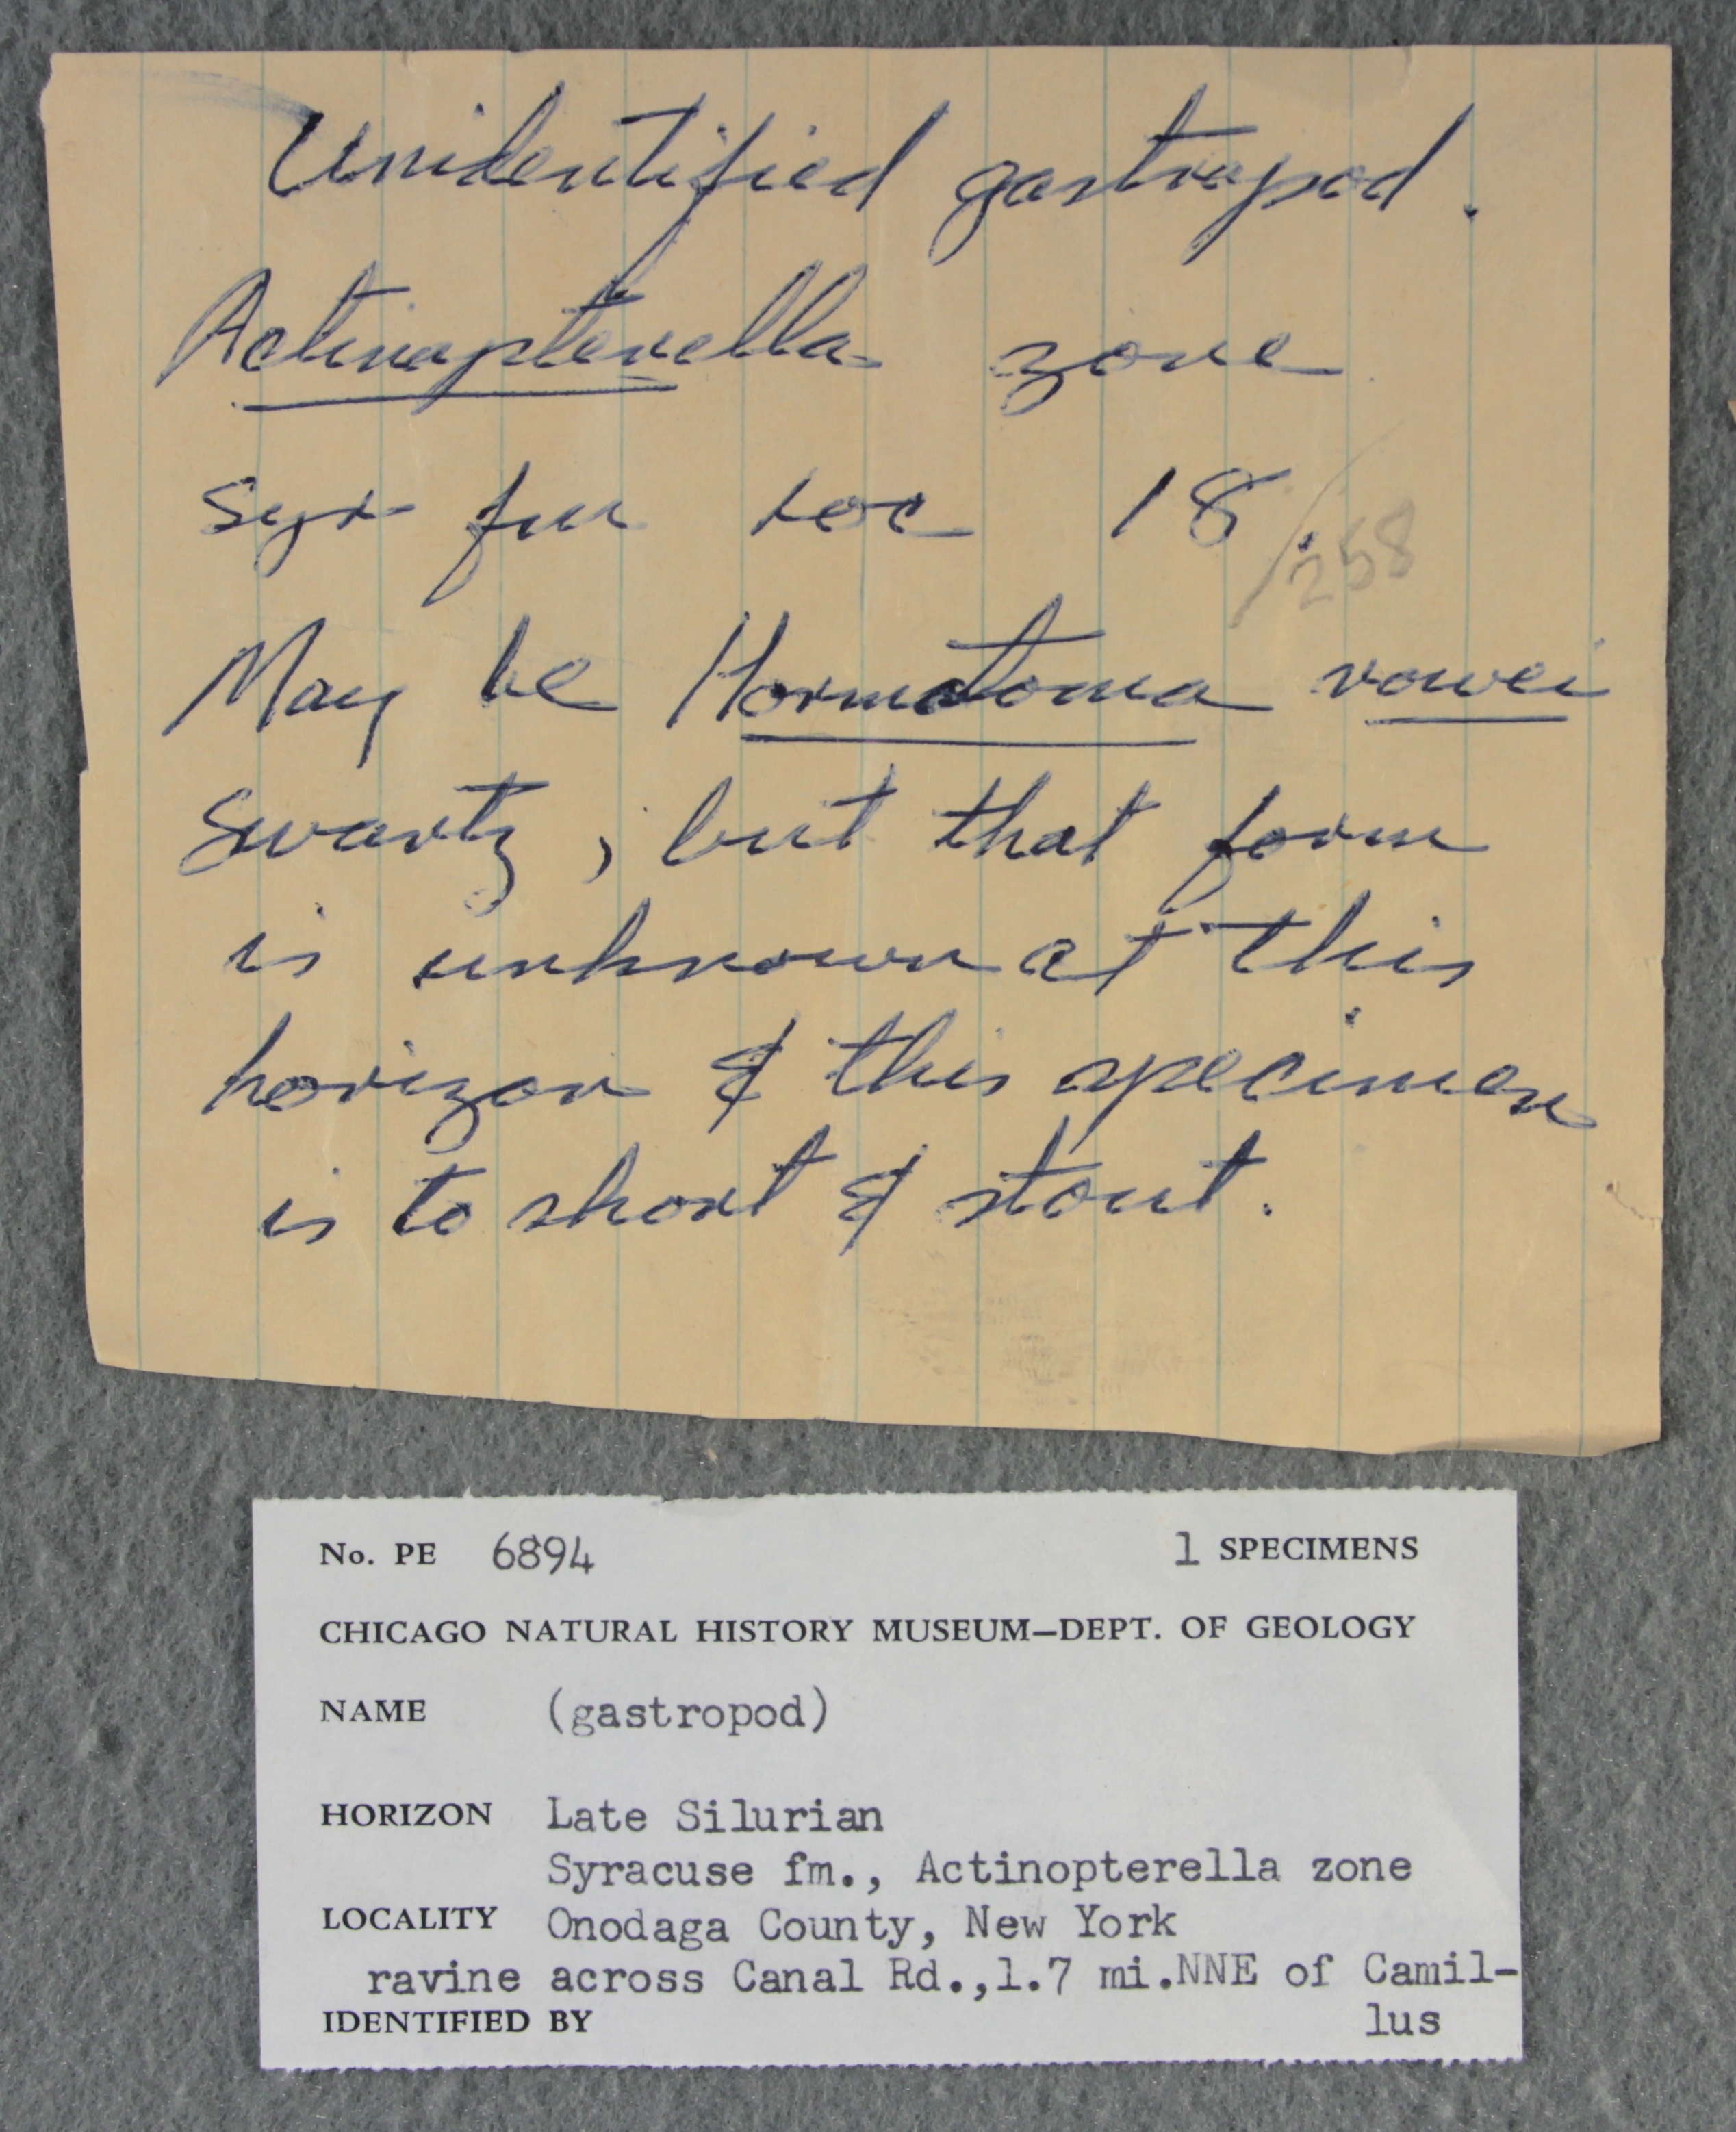 Unidentified gastropod.
Actinopterella zone
Syr fm loc 18.
/258
May be Hormotoma rowei
Swartz, but that form
is unknown at this
horizon & this specimen
is to short & stout.
No. PE 6894 1 SPECIMENS
CHICAGO NATURAL HISTORY MUSEUM—DEPT. OF GEOLOGY
NAME (gastropod)
HORIZON Late Silurian
Syracuse fm., Actinopterella zone
LOCALITY Onodaga County, New York
ravine across Canal Rd.,1.7 mi.NNE of Camil-
lus
IDENTIFIED BY